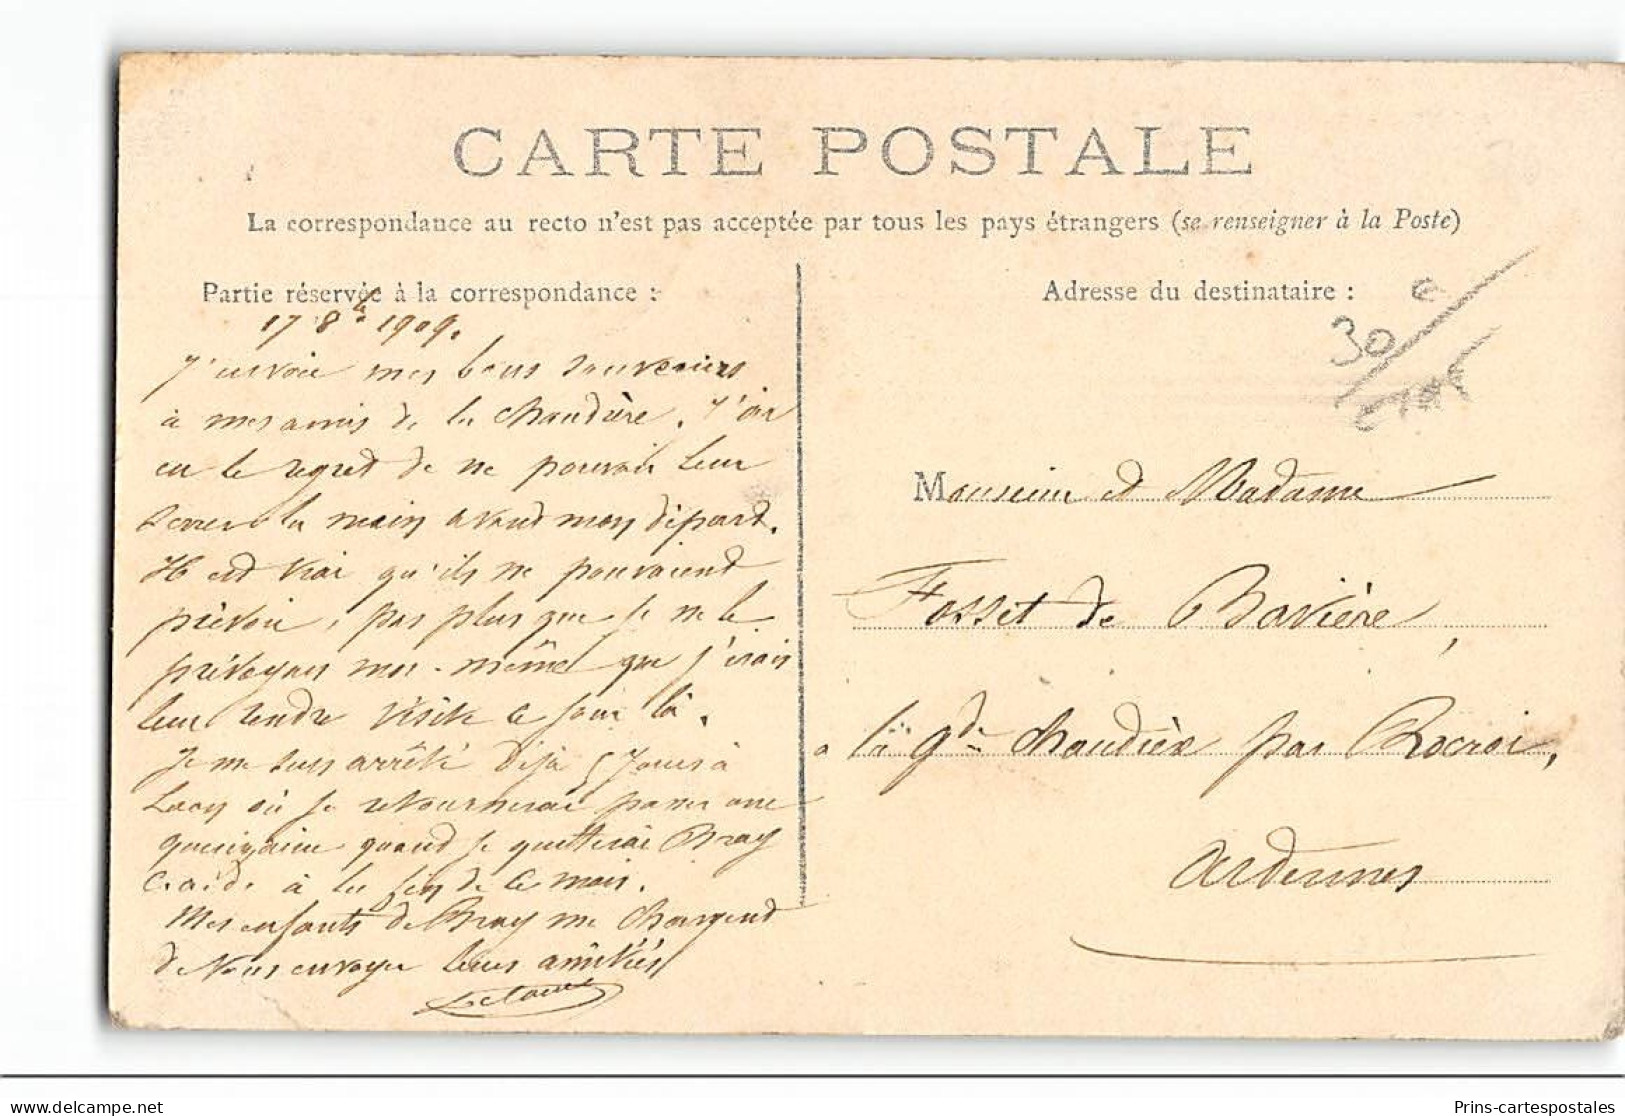 CARTE POSTALE
La correspondance au recto n'est pas acceptée par tous les pays étrangers (se renseigner à la Poste)
Partie réservée à la correspondance :
17 8bre 1909.
J'envoie mes bons souvenirs
à mes amis de la Chaudière. J'ai
eu le regret de ne pouvoir leur
serrer la main avant mon départ.
Il est vrai qu'ils ne pouvaient
prévoir, pas plus que je ne le
prévoyais moi-même que j'irais
leur rendre visite ce jour là.
Je me suis arrêté déjà 5 jours à
Laon où je retournerai passer une
quinzaine quand je quitterai Bray
à la fin de ce mois.
Mes enfants de Bray me chargent
de vous envoyer leurs amitiés
Adresse du destinataire :
30
Monsieur et Madame
Fosset de Bavière,
à la gde Chaudière par Rocroi,
Ardennes
Prins-cartespostales